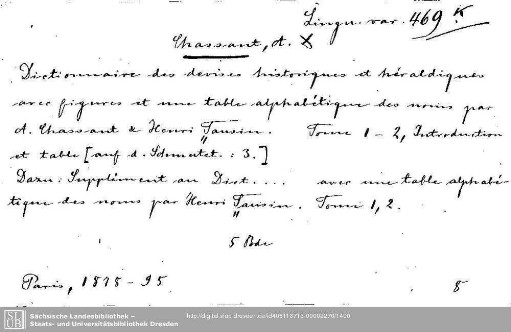 Lingu. var. 469 K
Chassant, A. X
Dictionnaire des devises historiques et héraldiques
avec figures et une table alphabétique des noms par
A. Chassant & Henri Tausin. Tome 1-2, Introduction
et table [auf d. Schmutzt. : 3.]
Dazu: Supplément au Dict. ... avec une table alphabé-
tique des noms par Henri Tausin. Tome 1, 2.
5 Bde
Paris, 1878-95
8
Sächsische Landesbibliothek –
Staats- und Universitätsbibliothek Dresden